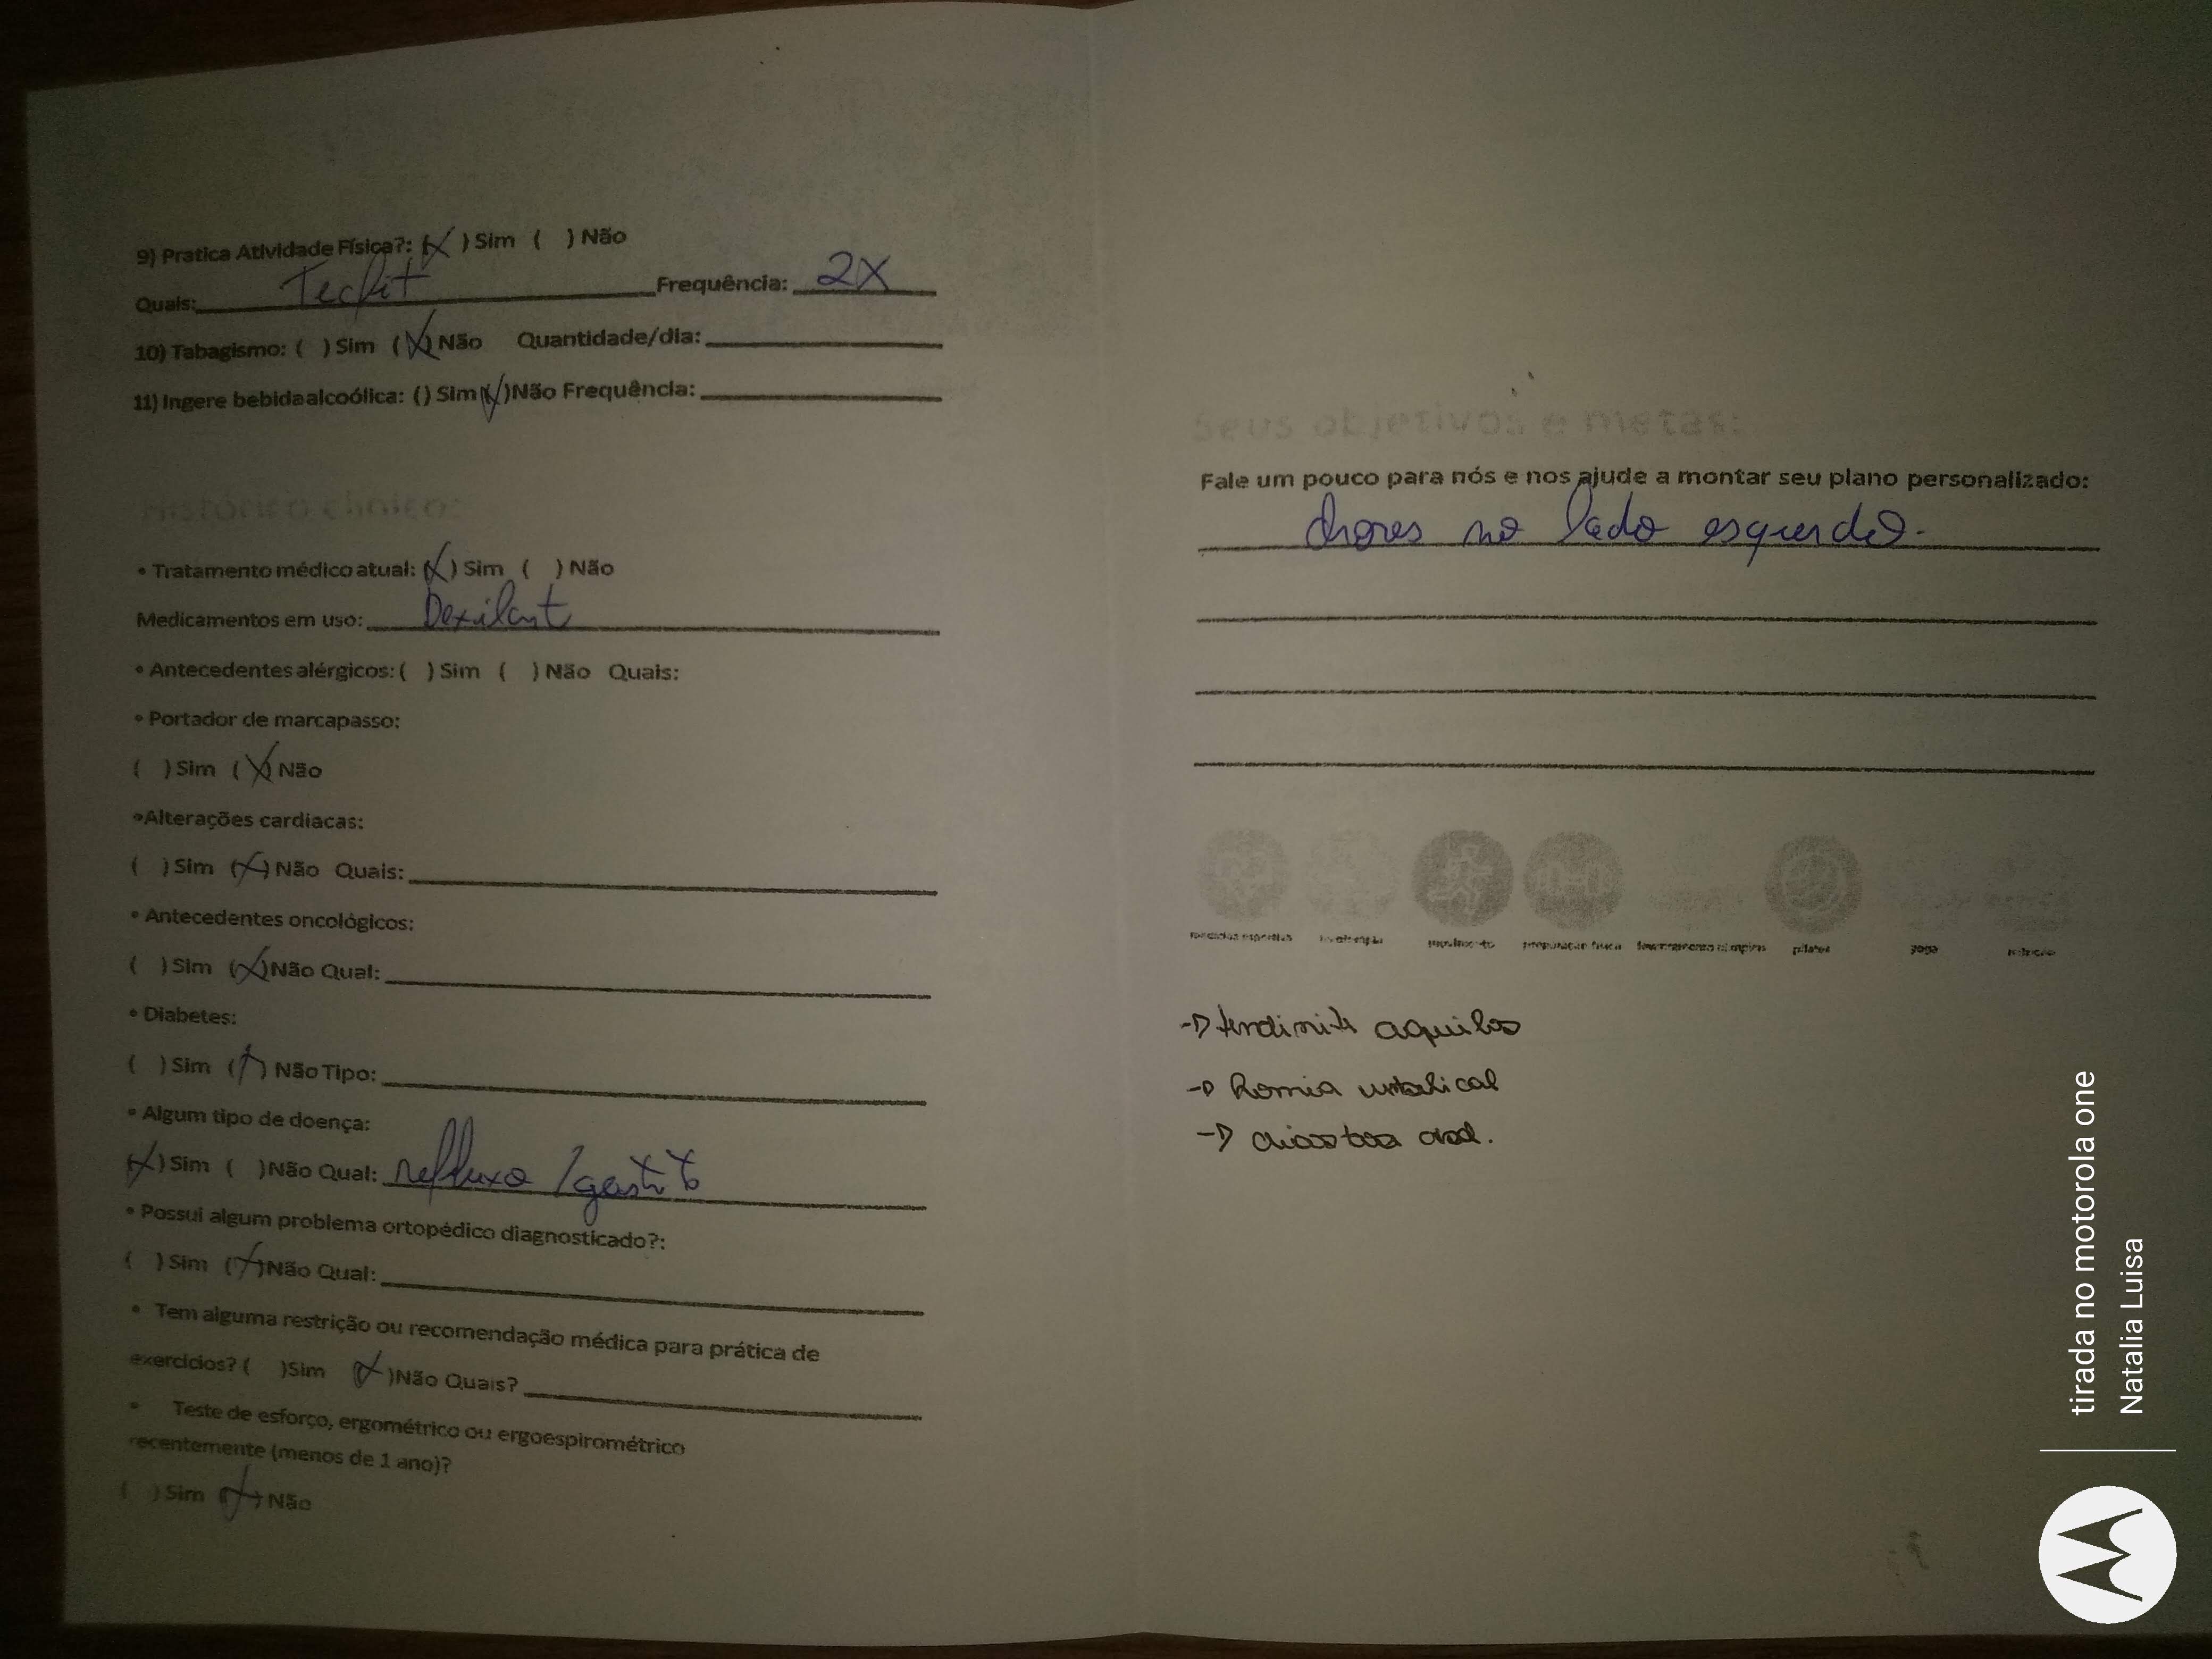 9) Pratica Atividade Física?: (X) Sim ( ) Não
Quais: Tecfit Frequência: 2X
10) Tabagismo: ( ) Sim (X) Não Quantidade/dia:
11) Ingere bebida alcoólica: () Sim (X) Não Frequência:
• Tratamento médico atual: (X) Sim ( ) Não
Medicamentos em uso: Dexilant
• Antecedentes alérgicos: ( ) Sim ( ) Não Quais:
• Portador de marcapasso:
( ) Sim (X) Não
• Alterações cardiacas:
( ) Sim (X) Não Quais:
• Antecedentes oncológicos:
( ) Sim (X) Não Qual:
• Diabetes:
( ) Sim (X) Não Tipo:
• Algum tipo de doença:
(X) Sim ( ) Não Qual: refluxo / gastrite
• Possui algum problema ortopédico diagnosticado?:
( ) Sim (X) Não Qual:
• Tem alguma restrição ou recomendação médica para prática de
exercícios? ( ) Sim (X) Não Quais?
• Teste de esforço, ergométrico ou ergoespirométrico
recentemente (menos de 1 ano)?
( ) Sim (X) Não
Seus objetivos e metas:
Fale um pouco para nós e nos ajude a montar seu plano personalizado:
dores no lado esquerdo.
pilates
yoga
→ tendinite aquiles
→ Hernia umbilical
tirada no motorola one
Natalia Luisa